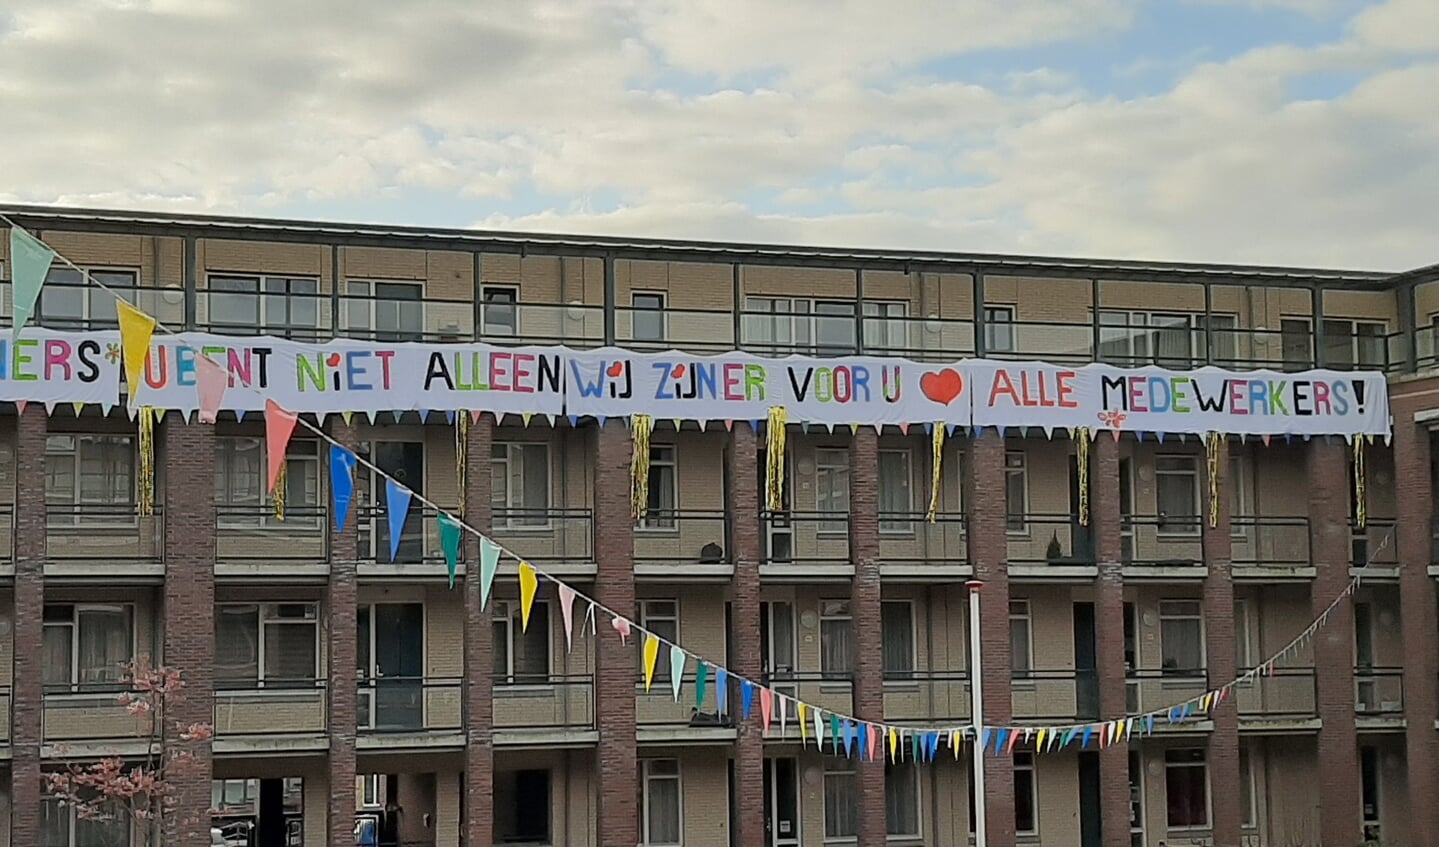 U BENT NiET ALLEEN WiJ ZiJN ER VOOR U ALLE MEDEWERKERS!